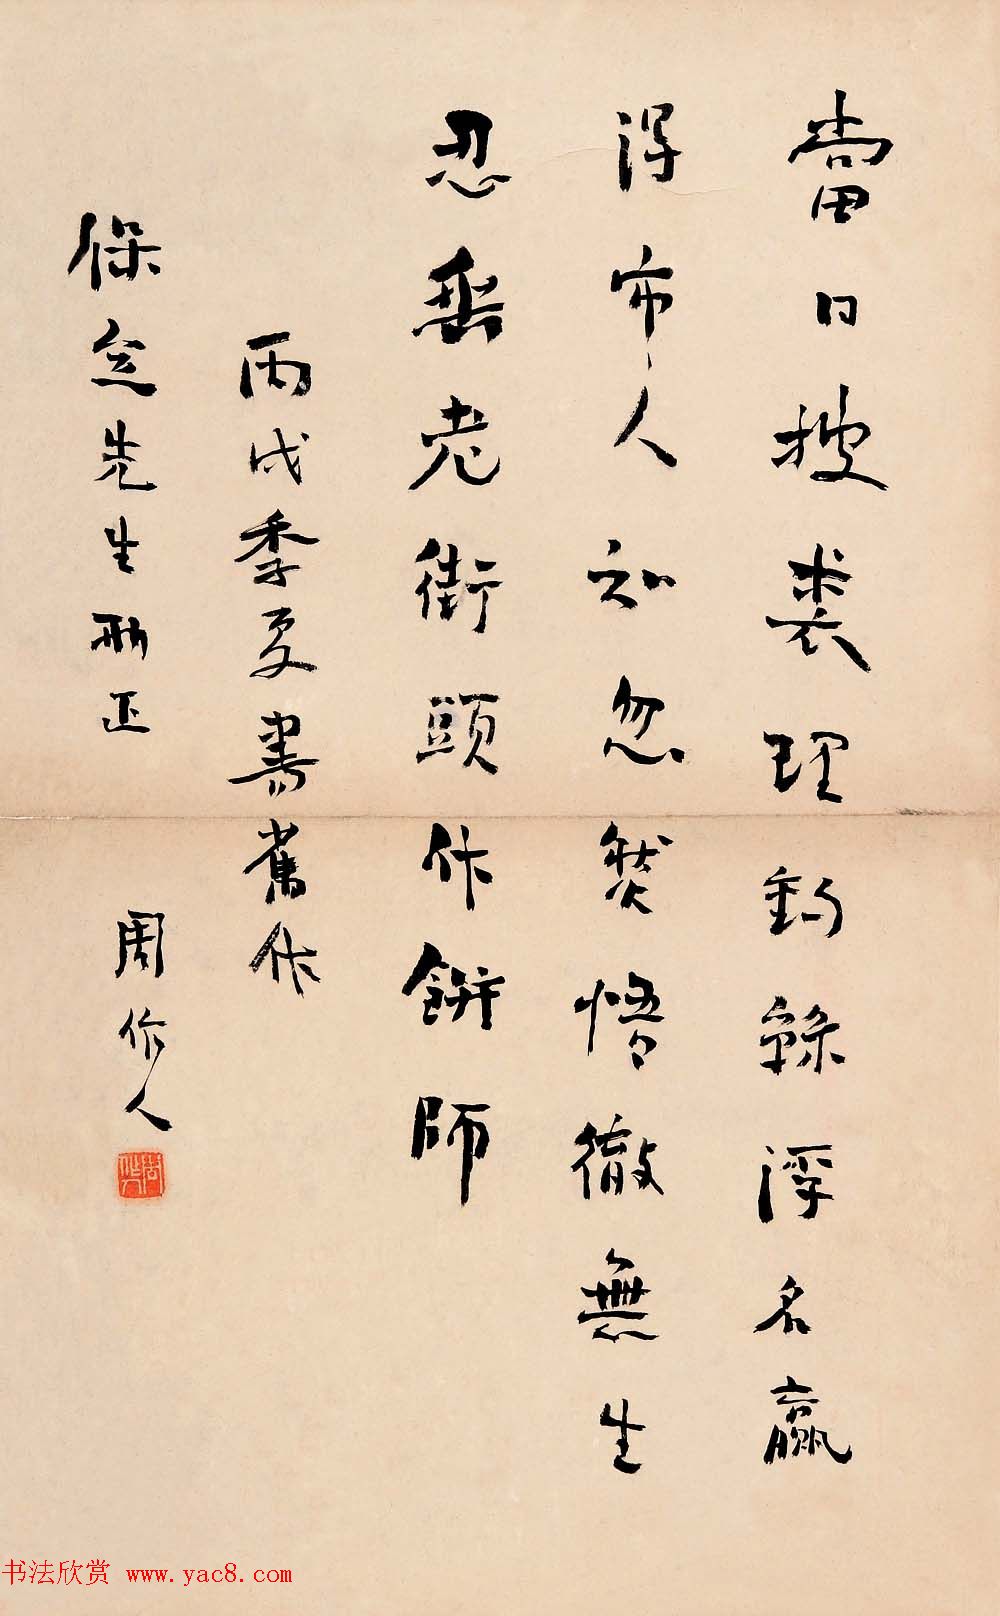 當日披裘理釣絲浮名贏
得市人知忽然悟徹無生
忍垂老街頭作餅師
丙戌季夏書舊作
保文先生雅正
周作人
书法欣赏 www.yac8.com